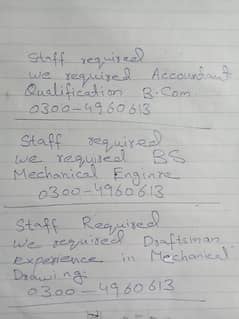 Staff required
we required Accountant
Qualification B.Com
0300-4960613
Staff required
we required BS
Mechanical Enginre
0300-4960613
Staff Required
We required Draftsman
experience in Mechanical
Drawing:
0300-4960613